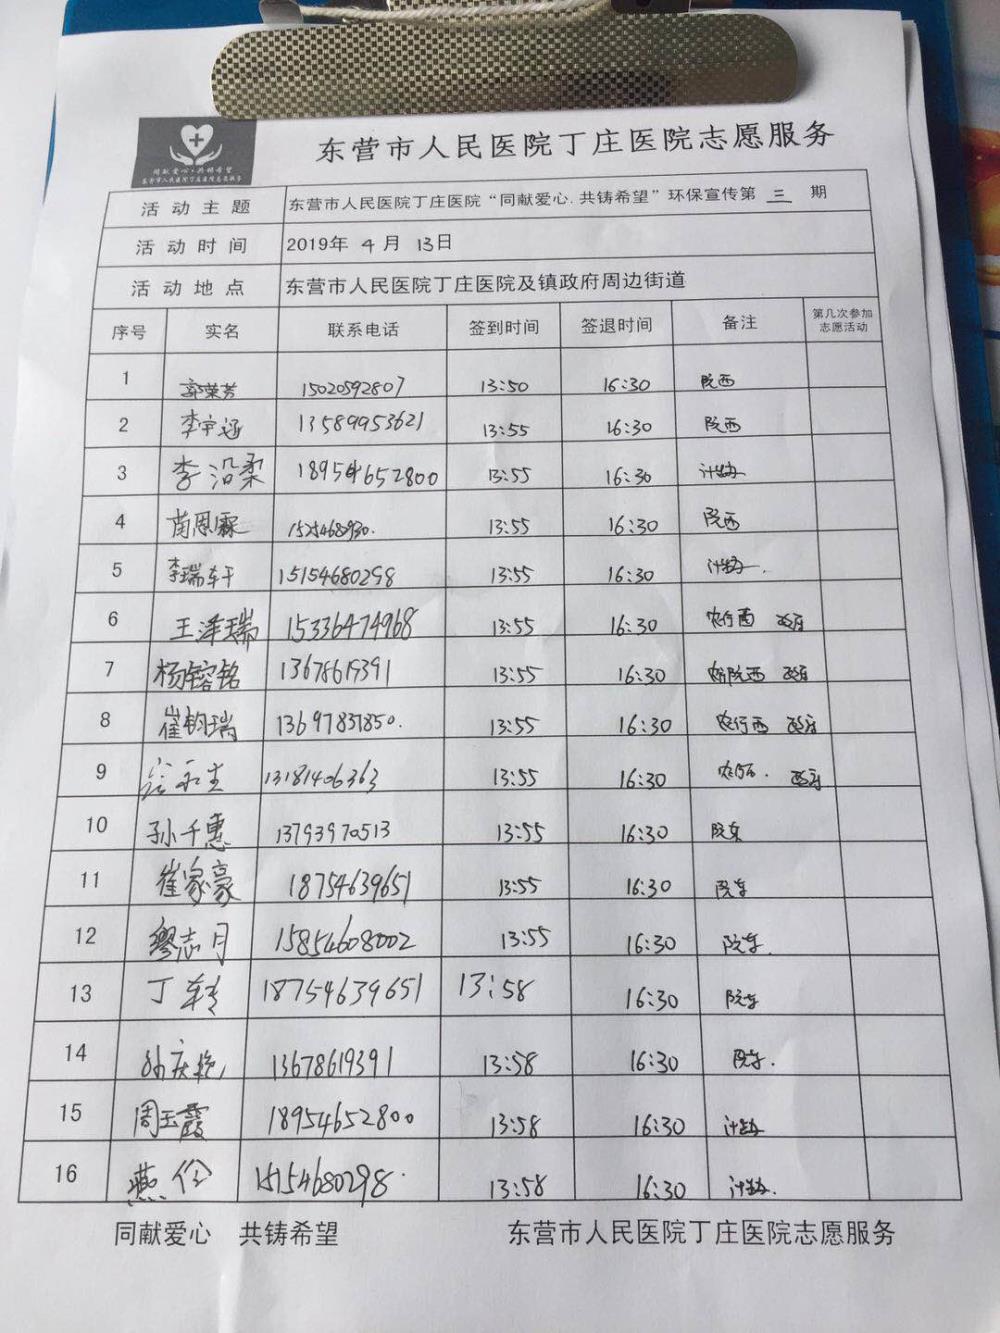 同献爱心·共铸希望
东营市人民医院丁庄医院志愿服务
东营市人民医院丁庄医院志愿服务
活动主题 东营市人民医院丁庄医院“同献爱心.共铸希望”环保宣传第 三 期
活动时间 2019年 4 月 13日
活动地点 东营市人民医院丁庄医院及镇政府周边街道
序号 实名 联系电话 签到时间 签退时间 备注 第几次参加志愿活动
1 郭荣芳 15020592807 13:50 16:30 院西
2 李宇涵 13589953621 13:55 16:30 院西
3 李沿柔 18954652800 13:55 16:30 计生办
4 苗恩霖 1525468930. 13:55 16:30 院西
5 李瑞轩 15154680298 13:55 16:30 计生办.
6 王泽瑞 15336474968 13:55 16:30 农行西 政府
7 杨镕铭 13678619391 13:55 16:30 院西 政府
8 崔钧瑞 13697831850. 13:55 16:30 农行西 政府
9 永生 13181406363 13:55 16:30 政府
10 孙千惠 13793970513 13:55 16:30 院东
11 崔家豪 18754639651 13:55 16:30 院东
12 缪志月 15854608002 13:55 16:30 院东.
13 丁转 18754639651 13:58 16:30 院东
14 孙庆艳 13678619391 13:58 16:30 院东.
15 周玉霞 18954652800 13:58 16:30 计生办
16 燕伶 15154680298. 13:58 16:30 计生办.
同献爱心 共铸希望 东营市人民医院丁庄医院志愿服务